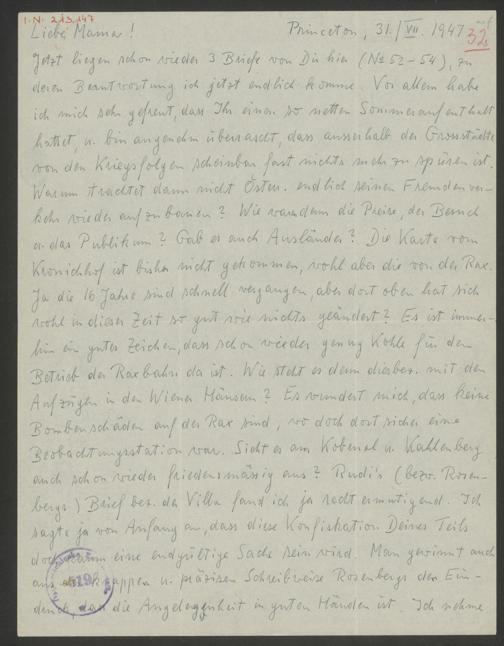 I.N. 213.147
Liebe Mama! Princeton, 31./VII. 1947
32
Jetzt liegen schon wieder 3 Briefe von Dir hier (No 52–54), zu
deren Beantwortung ich jetzt endlich komme. Vor allem habe
ich mich sehr gefreut, dass Ihr einen so netten Sommeraufenthalt
hattet, u. bin angenehm überrascht, dass ausserhalb der Grossstädte
von den Kriegsfolgen scheinbar fast nichts mehr zu spüren ist.
Warum trachtet dann nicht Österr. endlich seinen Fremdenver-
kehr wieder aufzubauen? Wie waren denn die Preise, der Besuch
u. das Publikum? Gab es auch Ausländer? Die Karte vom
ist bisher nicht gekommen, wohl aber die von der Rax.
Ja die 16 Jahre sind schnell vergangen, aber dort oben hat sich
wohl in dieser Zeit so gut wie nichts geändert? Es ist immer-
hin ein gutes Zeichen, dass schon wieder genug Kohle für den
Betrieb der Raxbahn da ist. Wie steht es denn diesbez. mit den
Aufzügen in den Wiener Häusern? Es wundert mich, dass keine
Bombenschäden auf der Rax sind, wo doch dort sicher eine
Beobachtungsstation war. Sieht es am Kobenzl u. Kahlenberg
auch schon wieder friedensmässig aus? Rudi's (bezw. Rosen-
bergs) Brief bez. der Villa fand ich ja recht ermutigend. Ich
sagte ja von Anfang an, dass diese Konfiskation Deines Teils
doch kaum eine endgültige Sache sein wird. Man gewinnt auch
aus der knappen u. präzisen Schreibweise Rosenbergs den Ein-
druck, dass die Angelegenheit in guten Händen ist. Ich nehme